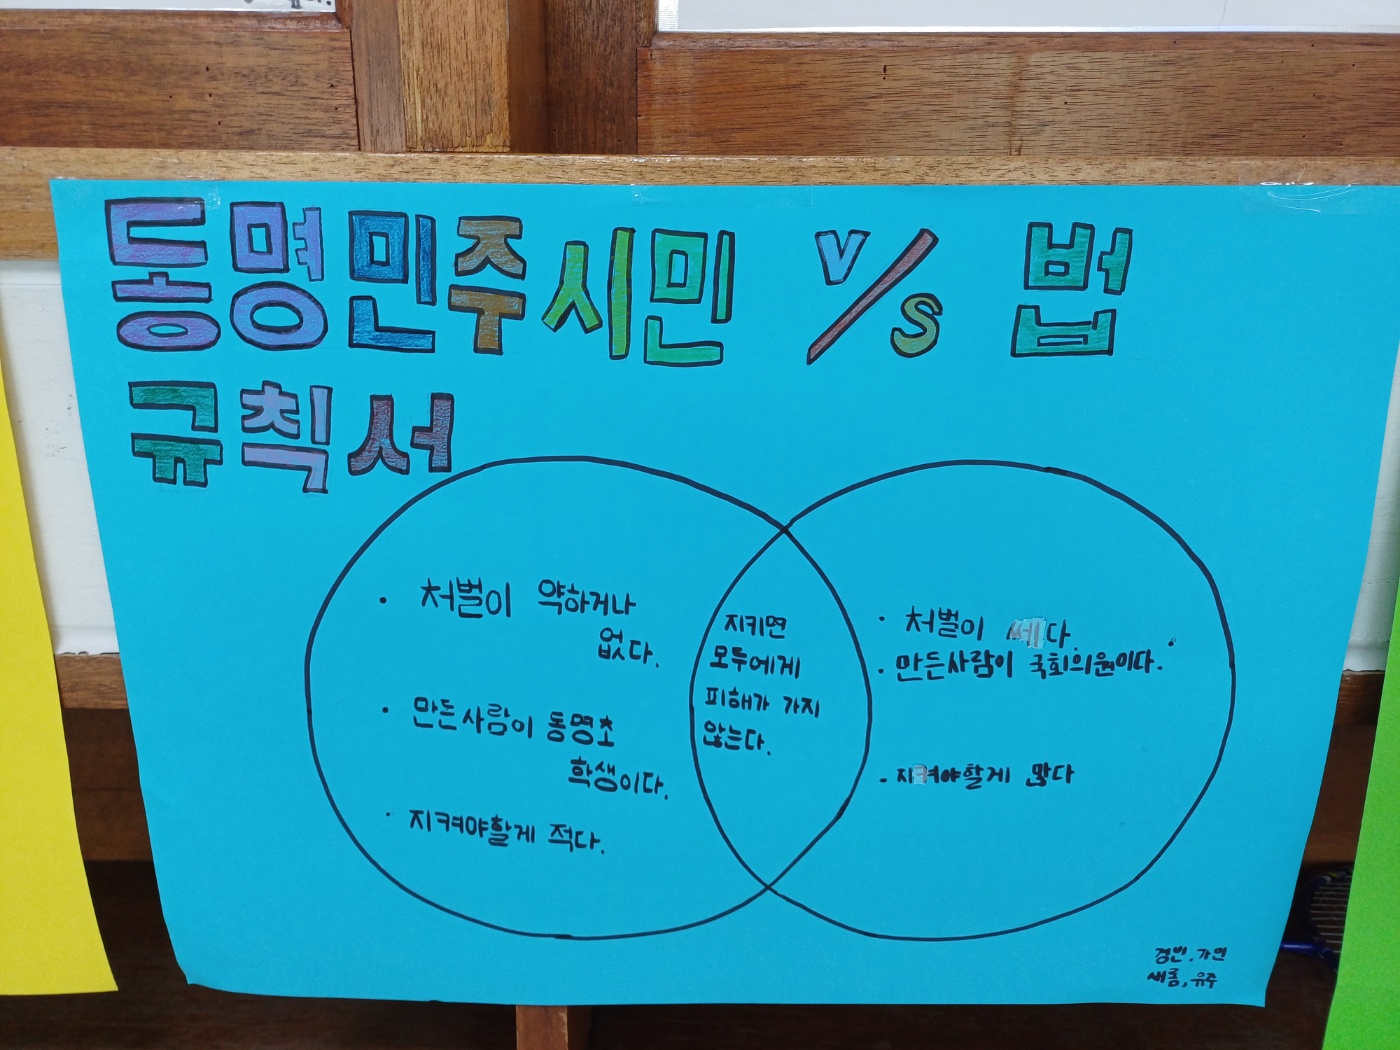 동명민주시민 V/S 법
규칙서
· 처벌이 약하거나
없다.
· 만든사람이 동명초
학생이다.
· 지켜야할게 적다.
지키면
모두에게
피해가 가지
않는다.
· 처벌이 쎄다.
· 만든사람이 국회의원이다.
· 지켜야할게 많다
경빈, 가연
새롬, 유주